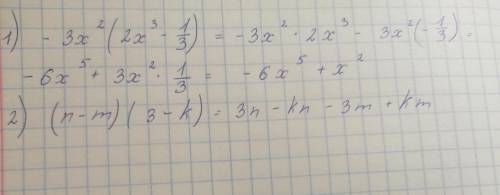 1) - 3x² (2x³ - 1/3) = -3x² · 2x³ - 3x² (-1/3) =
- 6x⁵ + 3x² · 1/3 = - 6x⁵ + x²
2) (n-m) (3-k) = 3n - kn - 3m + km